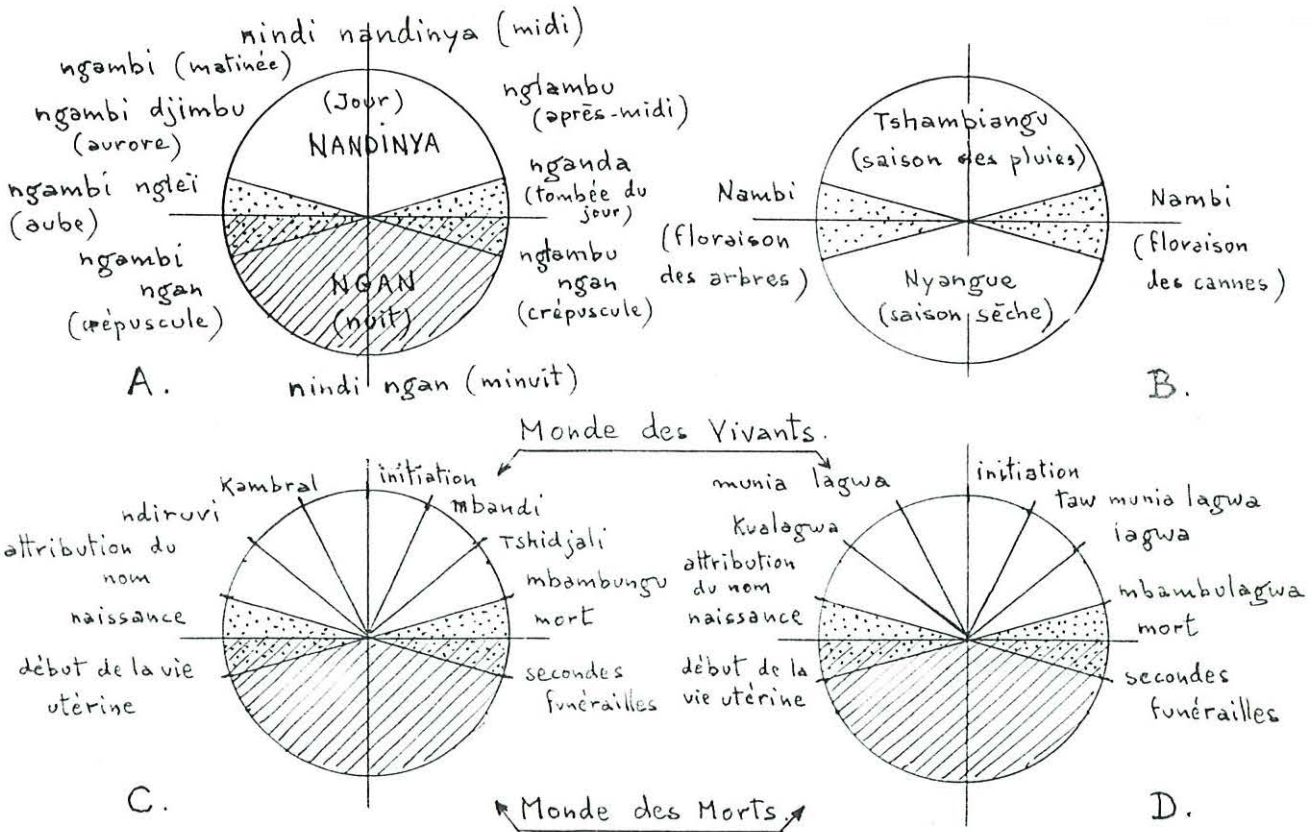 nindi nandinya (midi)
ngambi (matinée)
ngambi djimbu
(aurore)
ngambi ngleï
(aube)
ngambi
ngan
(crépuscule)
(Jour)
NANDINYA
NGAN
(nuit)
nglambu
(après-midi)
nganda
(tombée du
jour)
nglambu
ngan
(crépuscule)
A.
nindi ngan (minuit)
Tshambiangu
(saison des pluies)
Nambi
(floraison
des arbres)
Nyangue
(saison sèche)
Nambi
(floraison
des cannes)
B.
Monde des Vivants.
Kambral
ndiruvi
attribution du
nom
naissance
début de la vie
utérine
initiation
mbandi
Tshidjali
mbambungu
mort
secondes
funérailles
C.
munia lagwa
Kualagwa
attribution
du nom
naissance
début de la
vie utérine
initiation
taw munia lagwa
iagwa
mbambulagwa
mort
secondes
funérailles
D.
Monde des Morts.